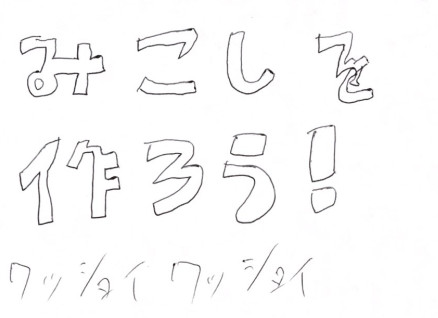 みこしを
作ろう!
ワッショイ ワッショイ